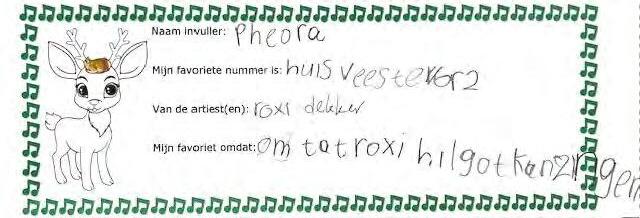 Naam invuller: Pheora
Mijn favoriete nummer is: huis veestevor 2
Van de artiest(en): roxi dekker
Mijn favoriet omdat: om tat roxi hil got kan zingen